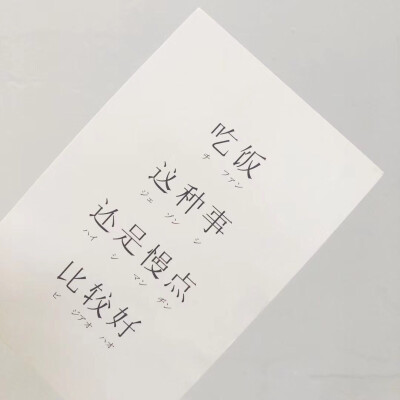 吃饭
チ ファン
这种事
ジェ ゾン シ
还是慢点
ハイ シ マン ヂン
比较好
ビ ジアオ ハオ